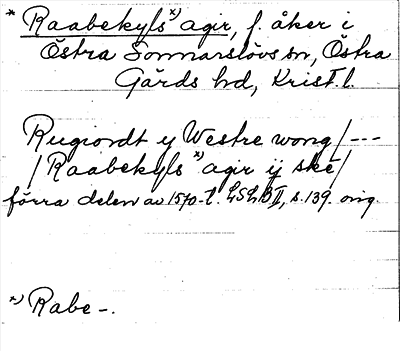 * Raabekyls*) agir, f. åker i
Östra Sönnarslövs sn, Östra
Gärds hd, Krist. l.
Rugiordt y Westre wong/---
/Raabekyls*) agir ij ske/
förra delen av 1570-t. LSLB II, s. 139. orig.
*) Rabe-.